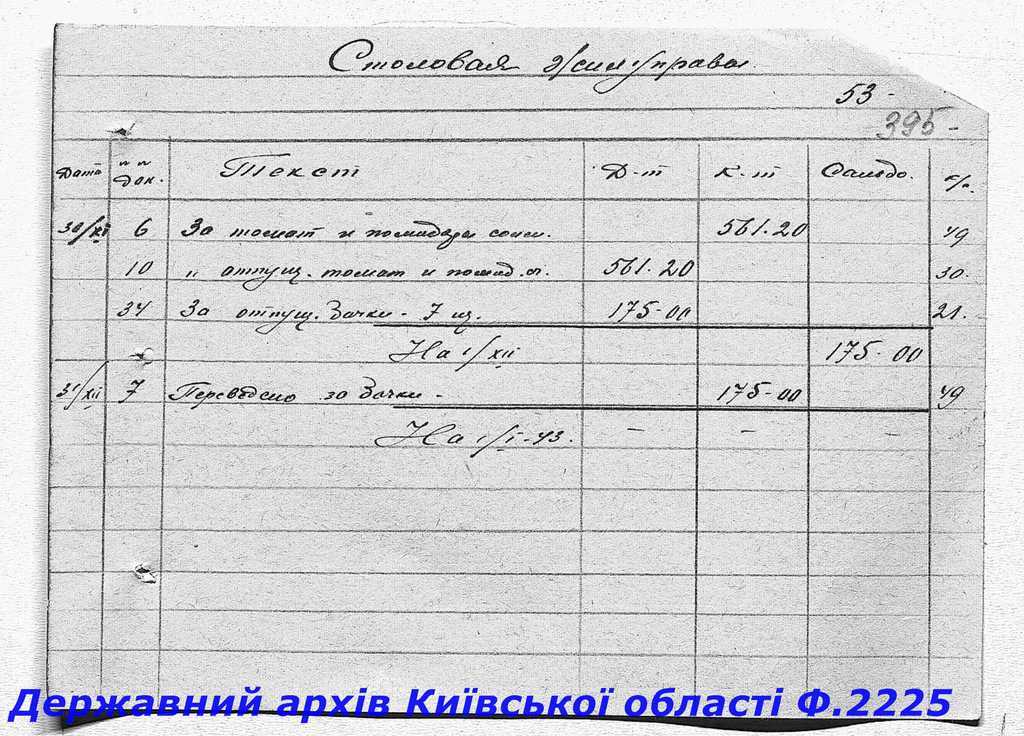 Столовая жилуправы
53 -
395 -
Дата №№ док. Текст Д-т К-т Сальдо. с/п.
30/XI 6 За томат и помидоры солен. 561.20 49
10 " отпущ. томат и помид. 561.20 30.
34 За отпущ. Бочки - 7 ш. 175-00 21.
На 1/XII 175-00
31/XII 7 Переведено за бочки - 175-00 49
На 1/I-43. - - -
Державний архів Київської області Ф.2225